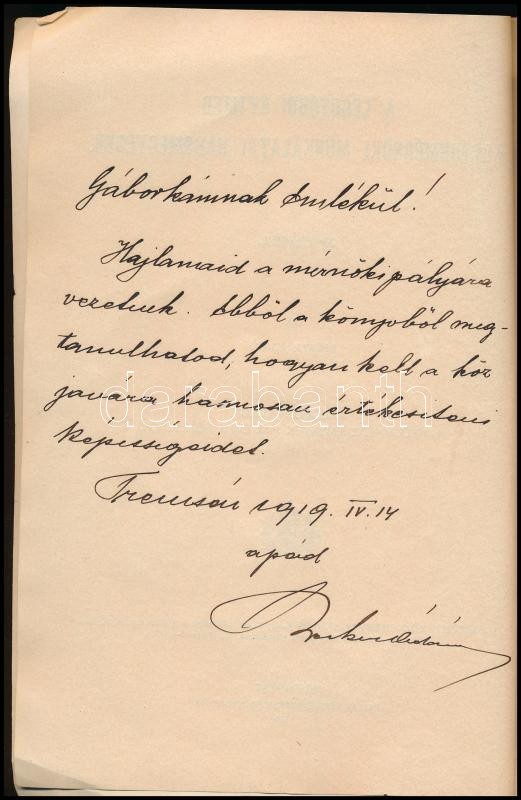 Gáborkámnak Emlékül!
Hajlamaid a mérnöki pályára
vezetnek. Ebből a könyvből meg-
tanulhatod, hogyan kell a köz
javára hasznosan értékesíteni
képességeidet.
Trencsén 1919. IV. 14
apád
darabanth